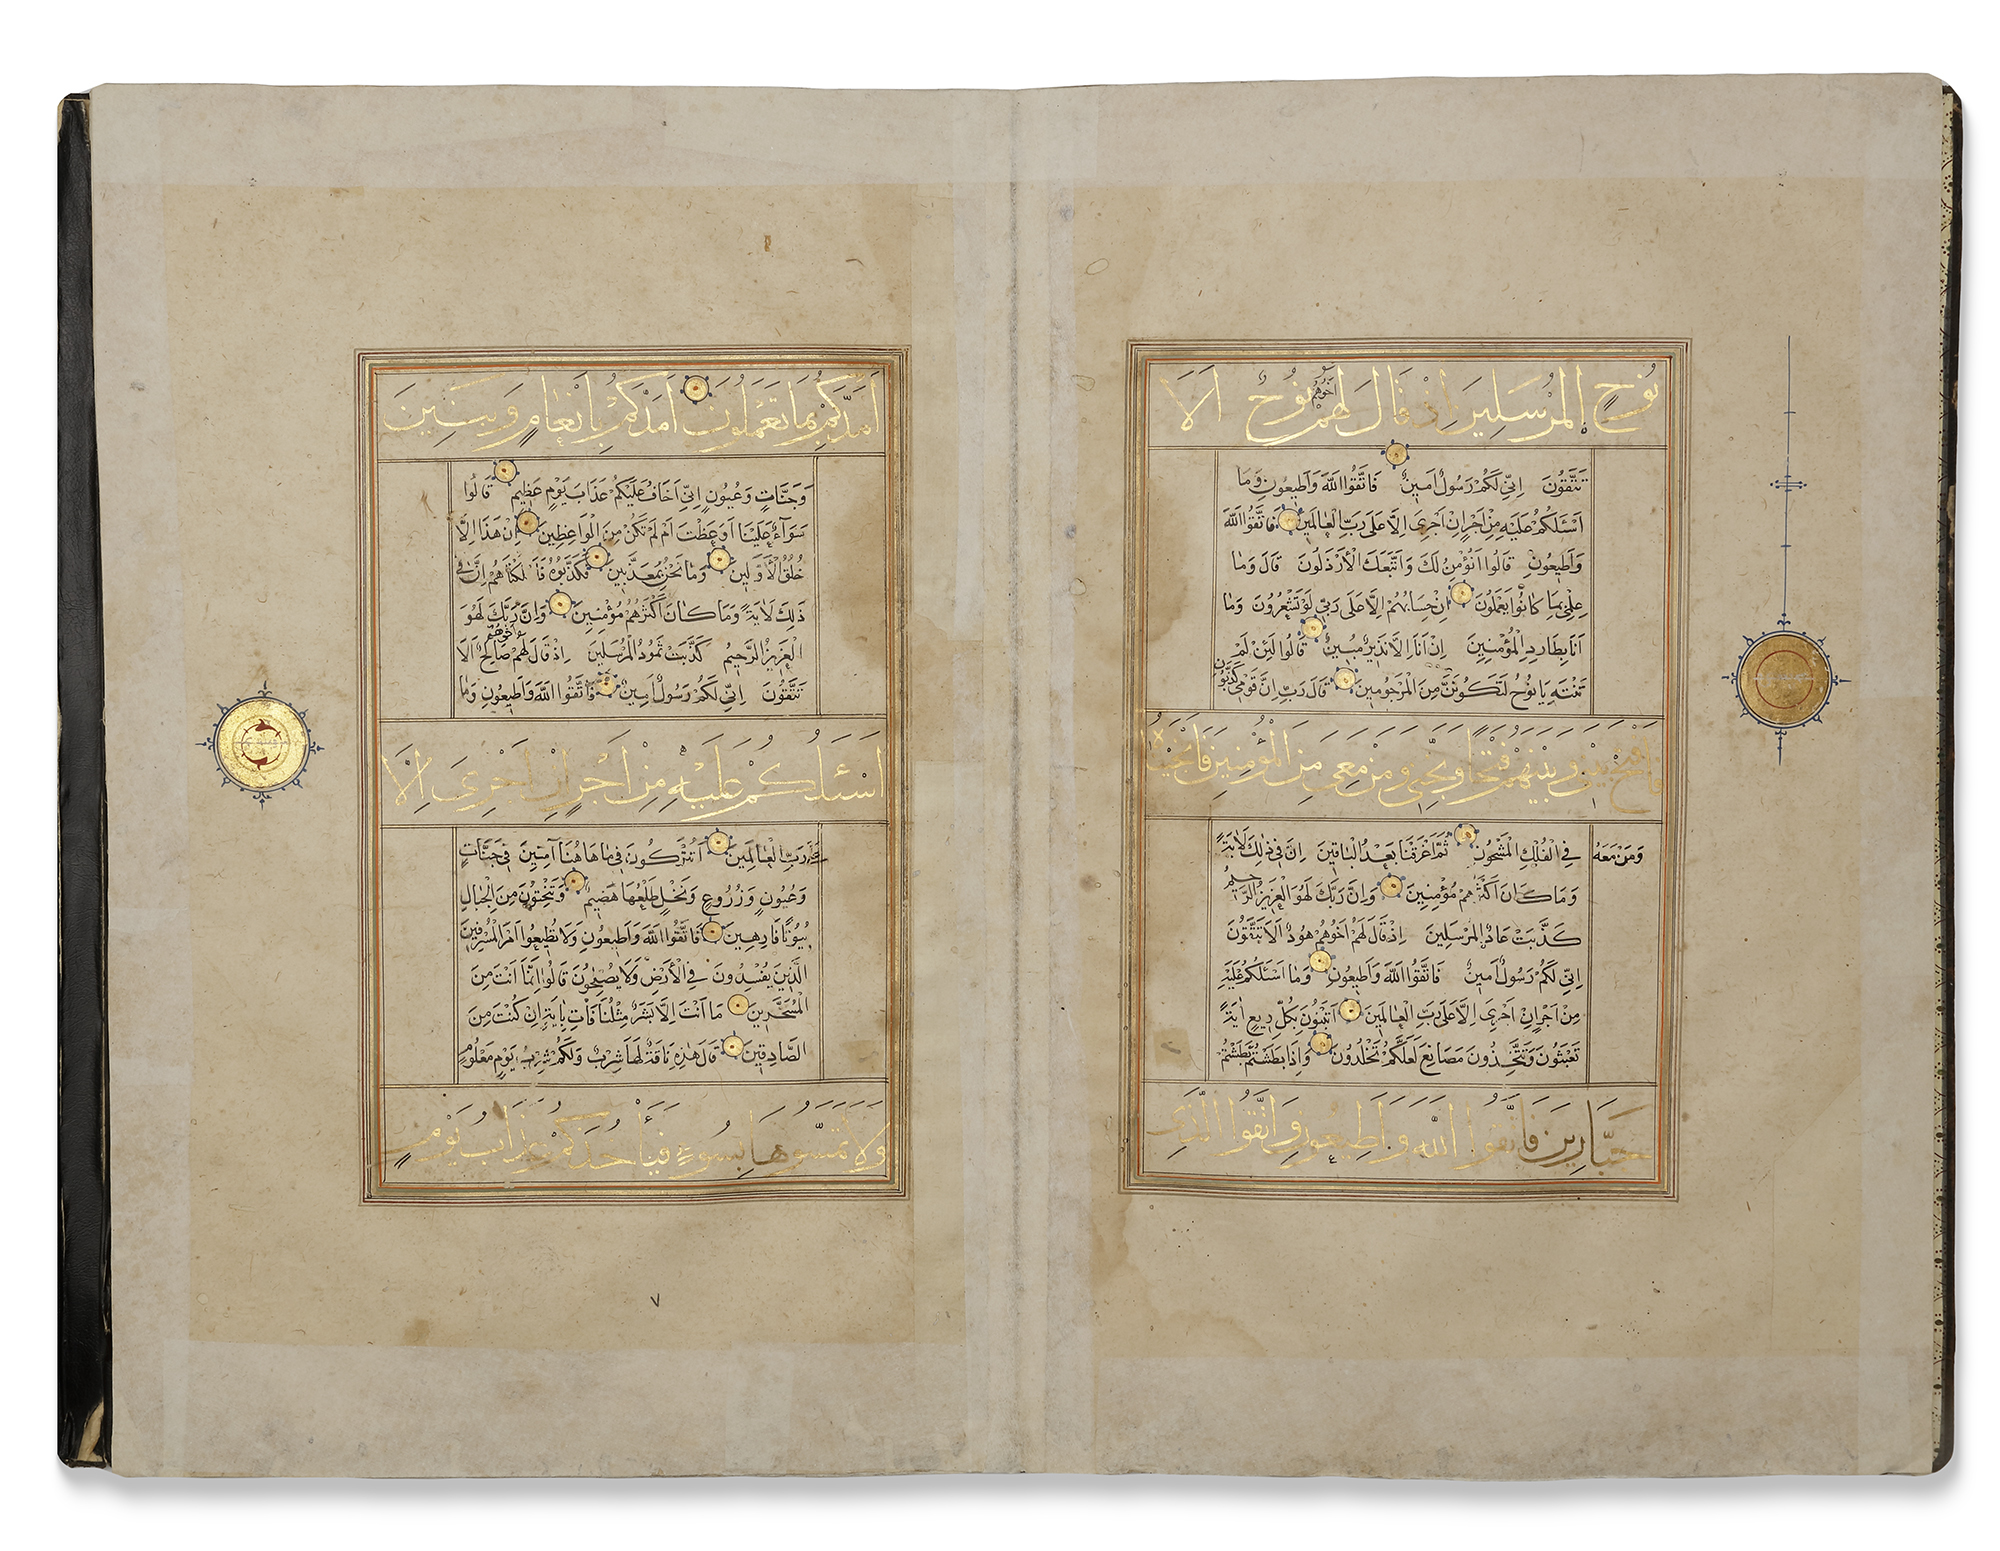 نُوحٍ الْمُرْسَلِينَ اِذْ قَالَ لَهُمْ اَخُوهُمْ نُوحٌ اَلَا
تَتَّقُونَ اِنِّي لَكُمْ رَسُولٌ اَمِينٌ فَاتَّقُوا اللَّهَ وَاَطِيعُونِ وَمَا
اَسْـَٔلُكُمْ عَلَيْهِ مِنْ اَجْرٍ اِنْ اَجْرِيَ اِلَّا عَلَى رَبِّ الْعٰالَمِينَ فَاتَّقُوا اللَّهَ
وَاَطِيعُونِ قَالُوا اَنُؤْمِنُ لَكَ وَاتَّبَعَكَ الْاَرْذَلُونَ قَالَ وَمٰا
عِلْمِي بِمٰا كٰانُوا يَعْمَلُونَ اِنْ حِسَابُهُمْ اِلَّا عَلَى رَبِّي لَوْ تَشْعُرُونَ وَمٰا
اَنَا بِطَارِدِ الْمُؤْمِنِينَ اِنْ اَنَا اِلَّا نَذِيرٌ مُبِينٌ قَالُوا لَئِنْ لَمْ
تَنْتَهِ يَا نُوحُ لَتَكُونَنَّ مِنَ الْمَرْجُومِينَ قَالَ رَبِّ اِنَّ قَوْمِي كَذَّبُونِ
فَافْتَحْ بَيْنِي وَبَيْنَهُمْ فَتْحًا وَنَجِّنِي وَمَنْ مَعِيَ مِنَ الْمُؤْمِنِينَ فَاَنْجَيْنَاهُ
وَمَنْ مَعَهُ فِي الْفُلْكِ الْمَشْحُونِ ثُمَّ اَغْرَقْنَا بَعْدُ الْبَاقِينَ اِنَّ فِي ذٰلِكَ لَاٰيَةً
وَمَا كَانَ اَكْثَرُهُمْ مُؤْمِنِينَ وَاِنَّ رَبَّكَ لَهُوَ الْعَزِيزُ الرَّحِيمُ
كَذَّبَتْ عَادٌ الْمُرْسَلِينَ اِذْ قَالَ لَهُمْ اَخُوهُمْ هُودٌ اَلَا تَتَّقُونَ
اِنِّي لَكُمْ رَسُولٌ اَمِينٌ فَاتَّقُوا اللَّهَ وَاَطِيعُونِ وَمٰا اَسْـَٔلُكُمْ عَلَيْهِ
مِنْ اَجْرٍ اِنْ اَجْرِيَ اِلَّا عَلَى رَبِّ الْعٰالَمِينَ اَتَبْنُونَ بِكُلِّ رِيعٍ اٰيَةً
تَعْبَثُونَ وَتَتَّخِذُونَ مَصَانِعَ لَعَلَّكُمْ تَخْلُدُونَ وَاِذَا بَطَشْتُمْ بَطَشْتُمْ
جَبَّارِينَ فَاتَّقُوا اللَّهَ وَاَطِيعُونِ وَاتَّقُوا الَّذِي
اَمَدَّكُمْ بِمَا تَعْمَلُونَ اَمَدَّكُمْ بِاَنْعٰامٍ وَبَنِينَ
وَجَنَّاتٍ وَعُيُونٍ اِنِّي اَخَافُ عَلَيْكُمْ عَذَابَ يَوْمٍ عَظِيمٍ قَالُوا
سَوَآءٌ عَلَيْنَا اَوَعَظْتَ اَمْ لَمْ تَكُنْ مِنَ الْوَاعِظِينَ اِنْ هَذَا اِلَّا
خُلُقُ الْاَوَّلِينَ وَمَا نَحْنُ بِمُعَذَّبِينَ فَكَذَّبُوهُ فَاَهْلَكْنٰاهُمْ اِنَّ فِي
ذَلِكَ لَاٰيَةً وَمَا كَانَ اَكْثَرُهُمْ مُؤْمِنِينَ وَاِنَّ رَبَّكَ لَهُوَ
الْعَزِيزُ الرَّحِيمُ كَذَّبَتْ ثَمُودُ الْمُرْسَلِينَ اِذْ قَالَ لَهُمْ اَخُوهُمْ صَالِحٌ اَلَا
تَتَّقُونَ اِنِّي لَكُمْ رَسُولٌ اَمِينٌ فَاتَّقُوا اللَّهَ وَاَطِيعُونِ وَمٰا
اَسْـَٔلُكُمْ عَلَيْهِ مِنْ اَجْرٍ اِنْ اَجْرِيَ اِلَّا
عَلَى رَبِّ الْعٰالَمِينَ اَتُتْرَكُونَ فِي مٰا هٰاهُنَا آمِنِينَ فِي جَنَّاتٍ
وَعُيُونٍ وَزُرُوعٍ وَنَخْلٍ طَلْعُهَا هَضِيمٌ وَتَنْحِتُونَ مِنَ الْجِبَالِ
بُيُوتًا فَارِهِينَ فَاتَّقُوا اللَّهَ وَاَطِيعُونِ وَلَا تُطِيعُوا اَمْرَ الْمُسْرِفِينَ
الَّذِينَ يُفْسِدُونَ فِي الْاَرْضِ وَلَا يُصْلِحُونَ قَالُوا اِنَّمَا اَنْتَ مِنَ
الْمُسَحَّرِينَ مَا اَنْتَ اِلَّا بَشَرٌ مِثْلُنَا فَأْتِ بِاٰيَةٍ اِنْ كُنْتَ مِنَ
الصَّادِقِينَ قَالَ هٰذِهِ نَاقَةٌ لَهَا شِرْبٌ وَلَكُمْ شِرْبُ يَوْمٍ مَعْلُومٍ
وَلَا تَمَسُّوهَا بِسُوءٍ فَيَأْخُذَكُمْ عَذَابُ يَوْمٍ
٧